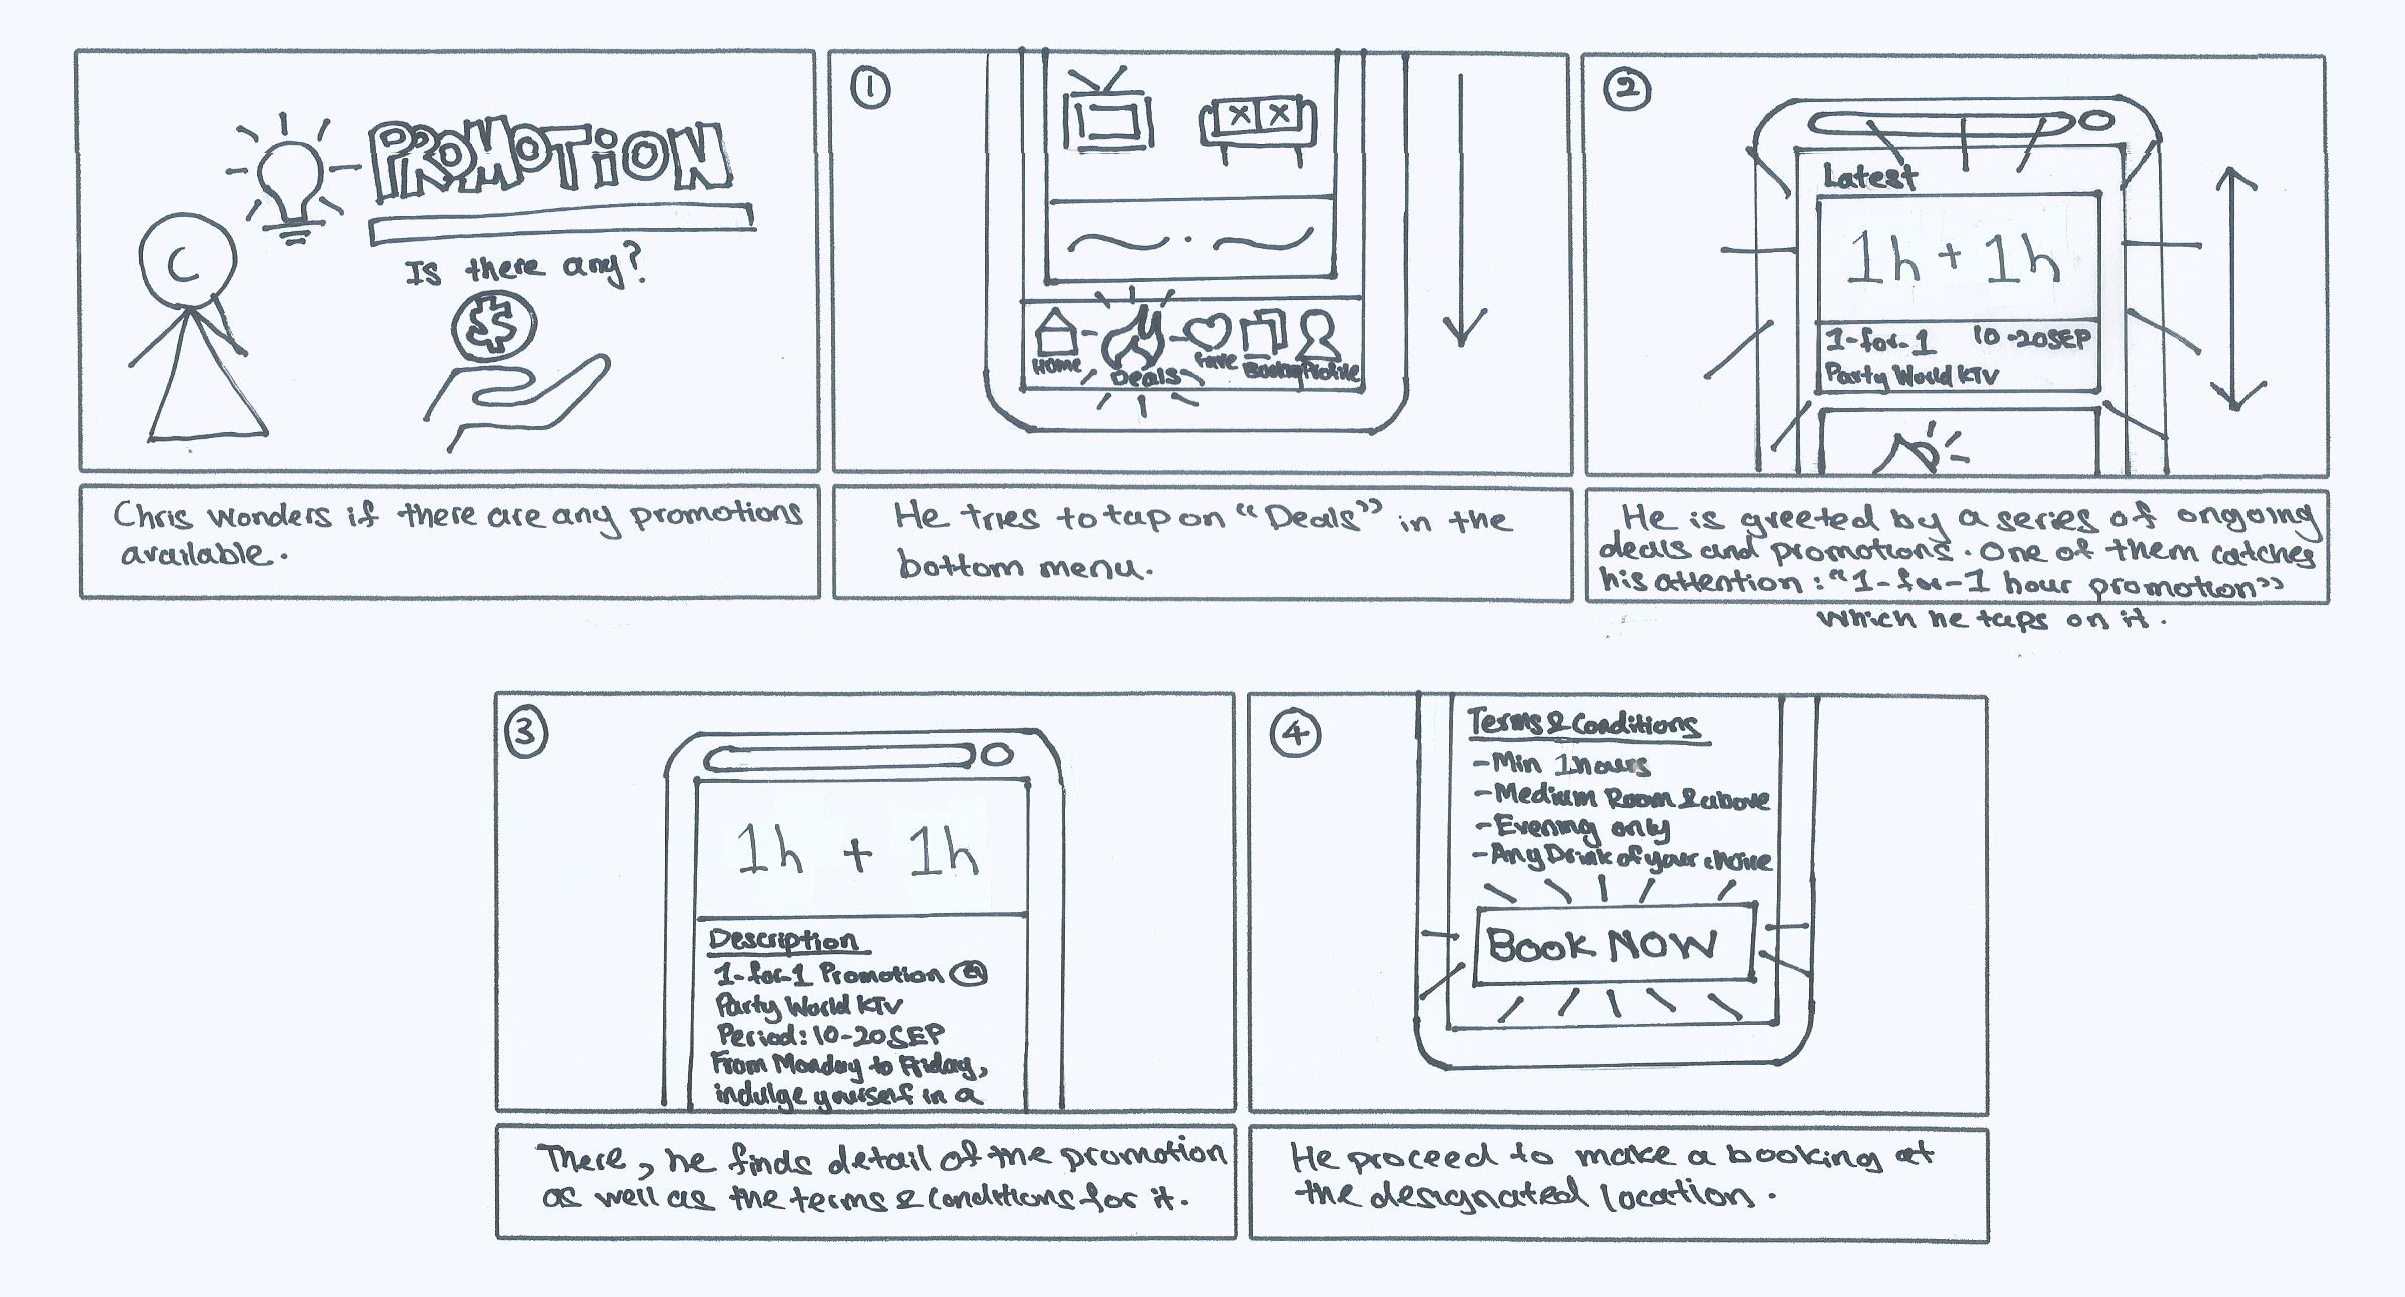 C
PROMOTION
Is there any?
$
Chris wonders if there are any promotions
available.
1
Home
Deals
Fave
Booking
Profile
He tries to tap on “Deals” in the
bottom menu.
2
Latest
1h + 1h
1-for-1 10-20SEP
Party World KTV
He is greeted by a series of ongoing
deals and promotions. One of them catches
his attention: “1-for-1 hour promotion”
which he taps on it.
3
1h + 1h
Description
1-for-1 Promotion @
Party World KTV
Period: 10-20SEP
From Monday to Friday,
indulge yourself in a
There, he finds detail of the promotion
as well as the terms & conditions for it.
4
Terms & Conditions
-Min 1hours
-Medium Room & above
-Evening only
-Any Drink of your choice
Book NOW
He proceed to make a booking at
the designated location.